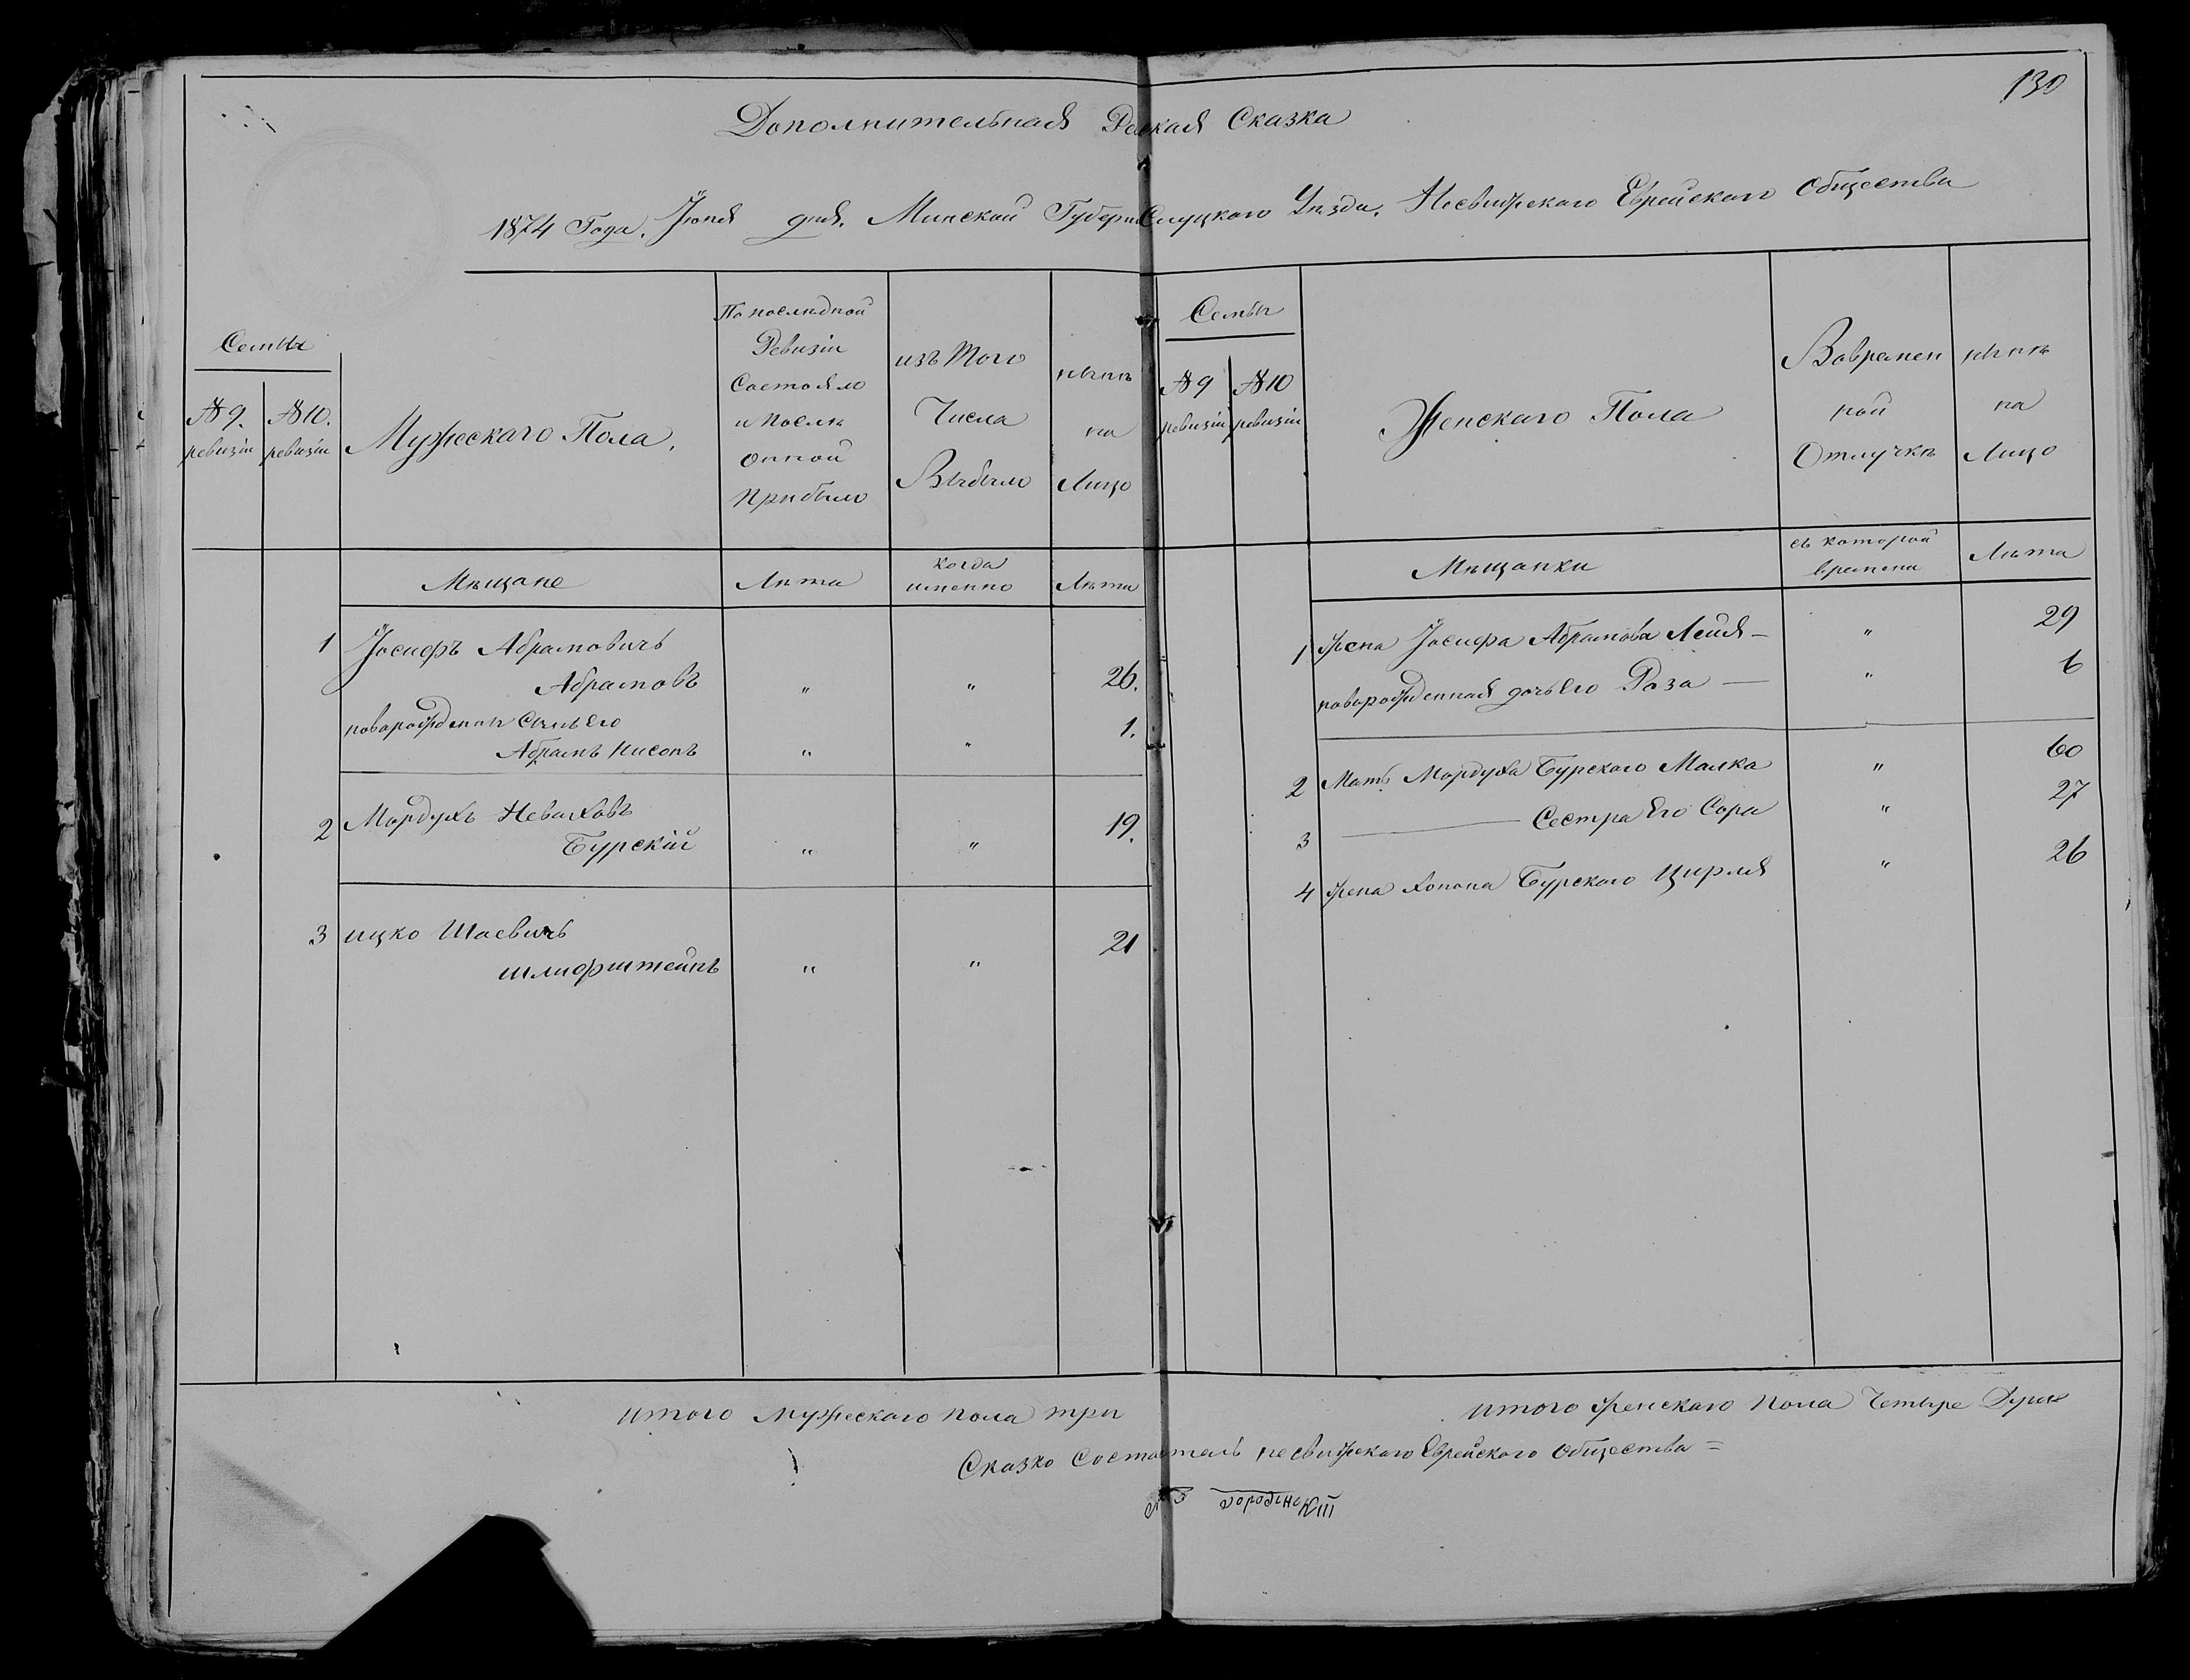 130
Дополнительная Сказка
1874 Года. Июня дня. Минской Губерн Слуцкого Уѣзда. Несвижского Еврейского Общества
Семьи
№ 9. ревизіи
№ 10. ревизіи
Мужескаго Пола.
По послѣдной
Ревизіи
Состояло
и послѣ
онной
прибыло
изъ того
Числа
Выбыло
нынѣ
на
Лицо
Мѣщане
Лѣта
когда
именно
Лѣта
1 Іосифъ Абрамовичъ
Абрамовъ " " 26.
новорожденны Сынъ Его 1.
Абрамъ Нисонъ " "
2 Мордухъ Неваховъ 19.
Бурскій " "
3 ицко Шаевичъ 21
шлифштейнъ " "
итого мужескаго пола три
Семьи
№ 9 ревизіи
№ 10 ревизіи
Женскаго Пола
Вовремен
ной
Отлучкѣ
нынѣ
на
Лицо
Мѣщанки
съ которой
времени
Лѣта
1 жена Іосифа Абрамова Лейя — " 29
новорожденная дочь Его Роза — " 6
2 Мать Мордуха Бурского Малка " 60
3 — Сестра Его Сора " 27
4 жена Хонона Бурского Цирля " 26
итого женскаго пола Четыре Души
Сказко Составитель несвижского Еврейского Общества =